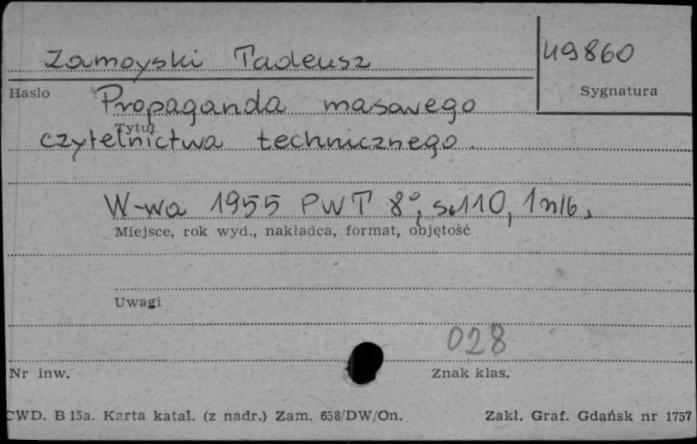 Zamoyski Tadeusz
49860
Hasło
Sygnatura
Propaganda masowego
Tytuł
czytelnictwa technicznego.
W-wa 1955 PWT 8°, s. 110, 1 nlb.
Miejsce, rok wyd., nakładca, format, objętość
Uwagi
028
Nr inw.
Znak klas.
CWD. B 15a. Karta katal. (z nadr.) Zam. 658/DW/On.
Zakł. Graf. Gdańsk nr 1757